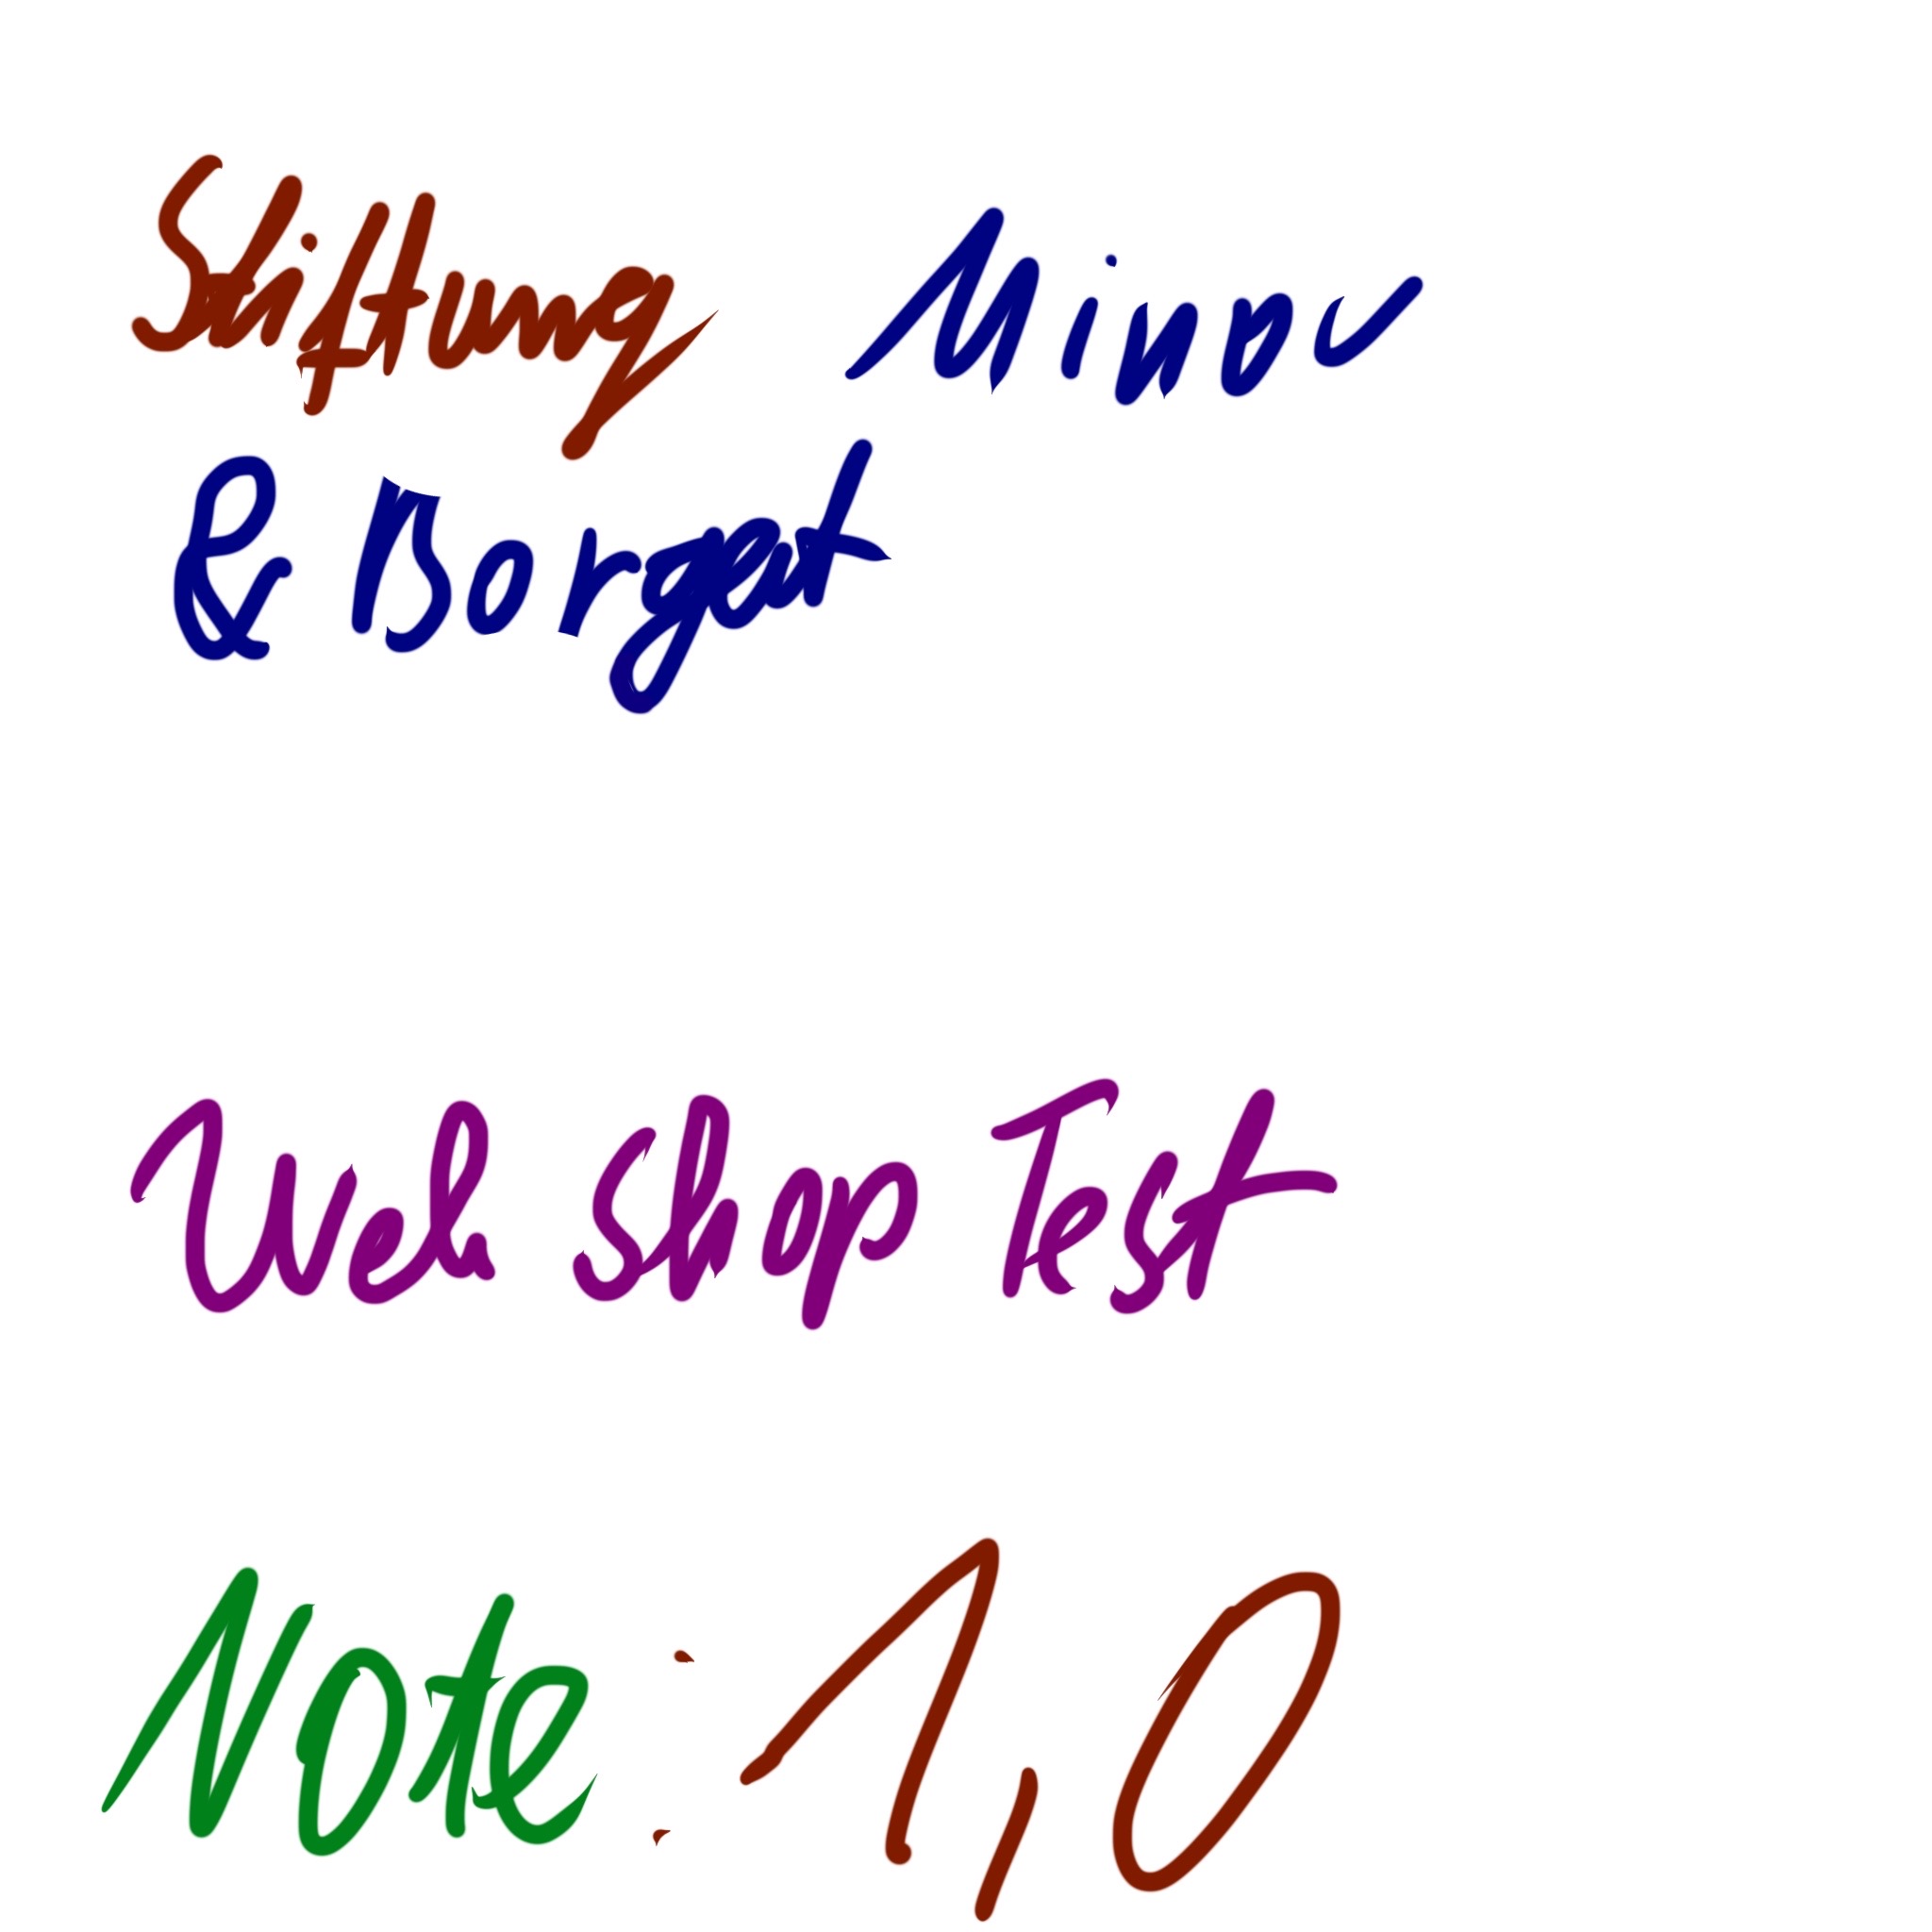 Stiftung Minor
& Borgert
Web Shop Test
Note: 1,0